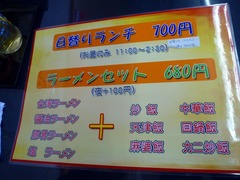 日替りランチ 700円
(お昼のみ 11:00~2:30)
ラーメンセット 680円
(夜+100円)
ラーメン
ラーメン
ラーメン
塩 ラーメン
+
炒飯 中華飯
天津飯 回鍋飯
麻婆飯 カニ炒飯